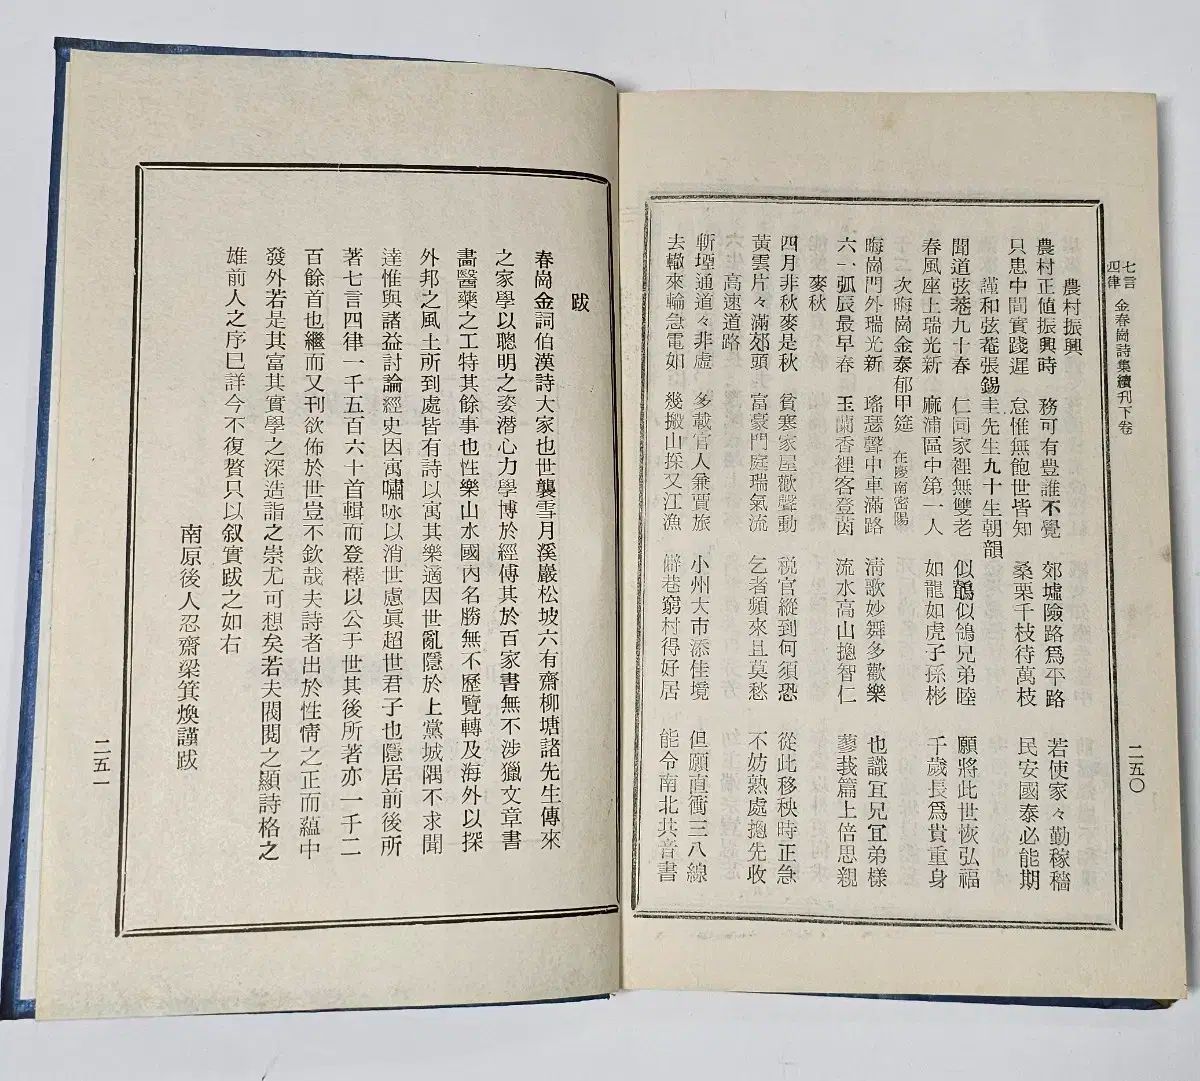 七言四律 金春崗詩集續刊下卷
二五〇
農村振興
農村正値振興時 務可有豊誰不覺 郊墟險路爲平路 若使家々勤稼穡
只患中間實踐遲 怠惟無飽世皆知 桑栗千枝待萬枝 民安國泰必能期
謹和弦菴張錫圭先生九十生朝韻
聞道弦菴九十春 仁同家裡無雙老 似鶺似鴿兄弟睦 願將此世恢弘福
春風座上瑞光新 麻浦區中第一人 如龍如虎子孫彬 千歲長爲貴重身
次晦崗金泰郁甲筵 在慶南密陽
晦崗門外瑞光新 瑤瑟聲中車滿路 淸歌妙舞多歡樂 也識宜兄宜弟樣
六一弧辰最早春 玉蘭香裡客登茵 流水高山摠智仁 蓼莪篇上倍思親
麥秋
四月非秋麥是秋 貧寒家屋歡聲動 税官縱到何須恐 從此移秧時正急
黃雲片々滿郊頭 富豪門庭瑞氣流 乞者頻來且莫愁 不妨熟處摠先收
高速道路
斬堙通道々非虛 多載官人兼賈旅 小州大市添佳境 但願直衝三八線
去轍來輪急電如 幾搬山採又江漁 僻巷窮村得好居 能令南北共音書
跋
春崗金詞伯漢詩大家也世襲雪月溪巖松坡六有齋柳塘諸先生傳來
之家學以聰明之姿潛心力學博於經傳其於百家書無不涉獵文章書
畵醫藥之工特其餘事也性樂山水國內名勝無不歷覽轉及海外以探
外邦之風土所到處皆有詩以寓其樂適因世亂隱於上黨城隅不求聞
達惟與諸益討論經史因寓嘯咏以消世慮眞超世君子也隱居前後所
著七言四律一千五百六十首輯而登榟以公于世其後所著亦一千二
百餘首也繼而又刊欲佈於世豈不欽哉夫詩者出於性情之正而蘊中
發外若是其富其實學之深造詣之崇尤可想矣若夫閥閱之顯詩格之
雄前人之序巳詳今不復贅只以叙實跋之如右
南原後人忍齋梁箕煥謹跋
二五一